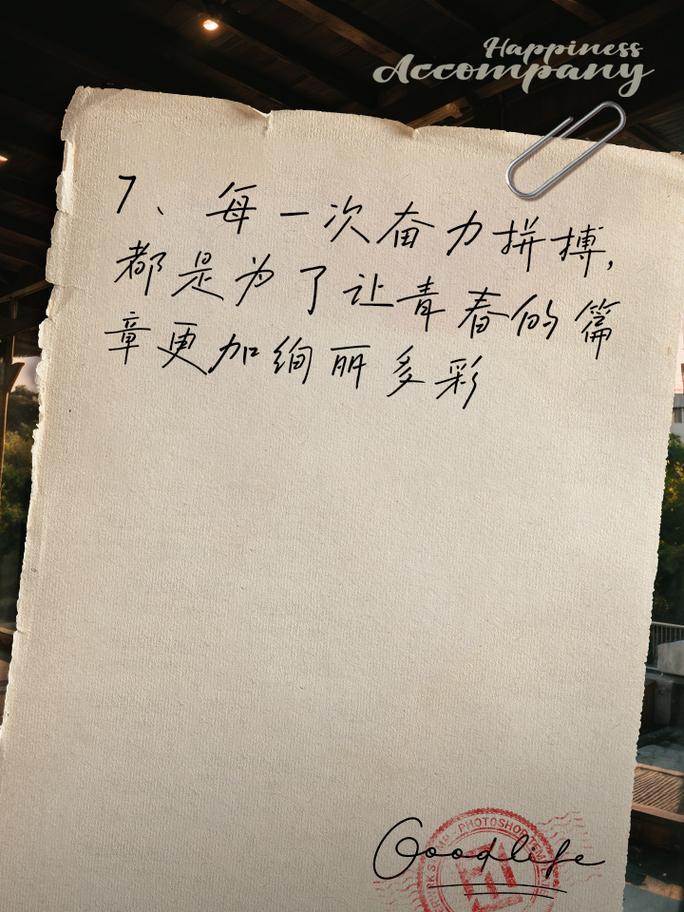 Happiness
Accompany
7、每一次奋力拼搏,
都是为了让青春的篇
章更加绚丽多彩
PHOTOSHOP
Goodlife